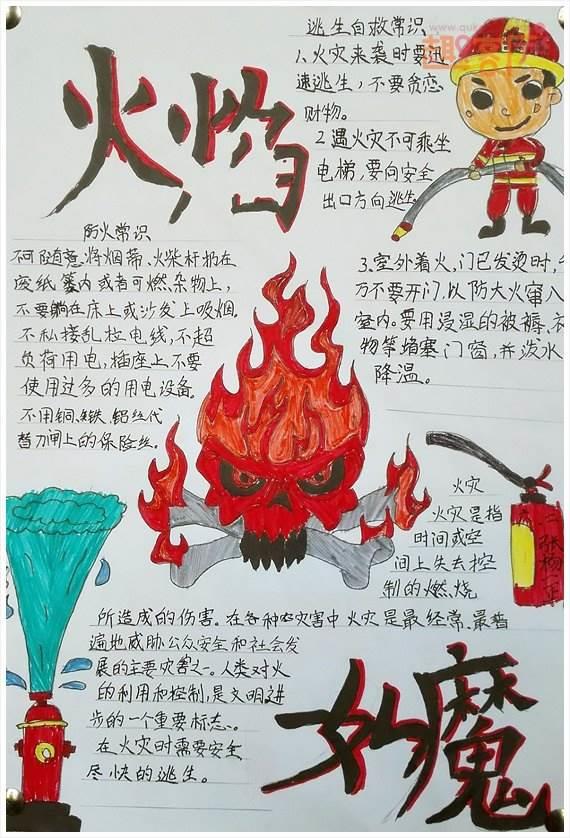 火焰
逃生自救常识
1、火灾来袭时要迅
速逃生,不要贪恋
财物。
2 遇火灾不可乘坐
电梯,要向安全
出口方向逃生
防火常识
不可随意将烟蒂、火柴杆扔在
废纸篓内或者可燃杂物上,
不要躺在床上或沙发上吸烟。
不私接乱拉电线,不超
负荷用电,插座上不要
使用过多的用电设备。
不用铜、铁、铝丝代
替刀闸上的保险丝。
3、室外着火、门已发烫时,
万不要开门,以防大火窜入
室内。要用浸湿的被褥、衣
物等堵塞门窗,并泼水
降温。
火灾
火灾是指
时间或空
间上失去控
制的燃烧
所造成的伤害。在各种灾害中火灾是最经常、最普
遍地威胁公众安全和社会发
展的主要灾害之一。人类对火
的利用和控制,是文明进
步的一个重要标志。
在火灾时需要安全
尽快的逃生。
如魔